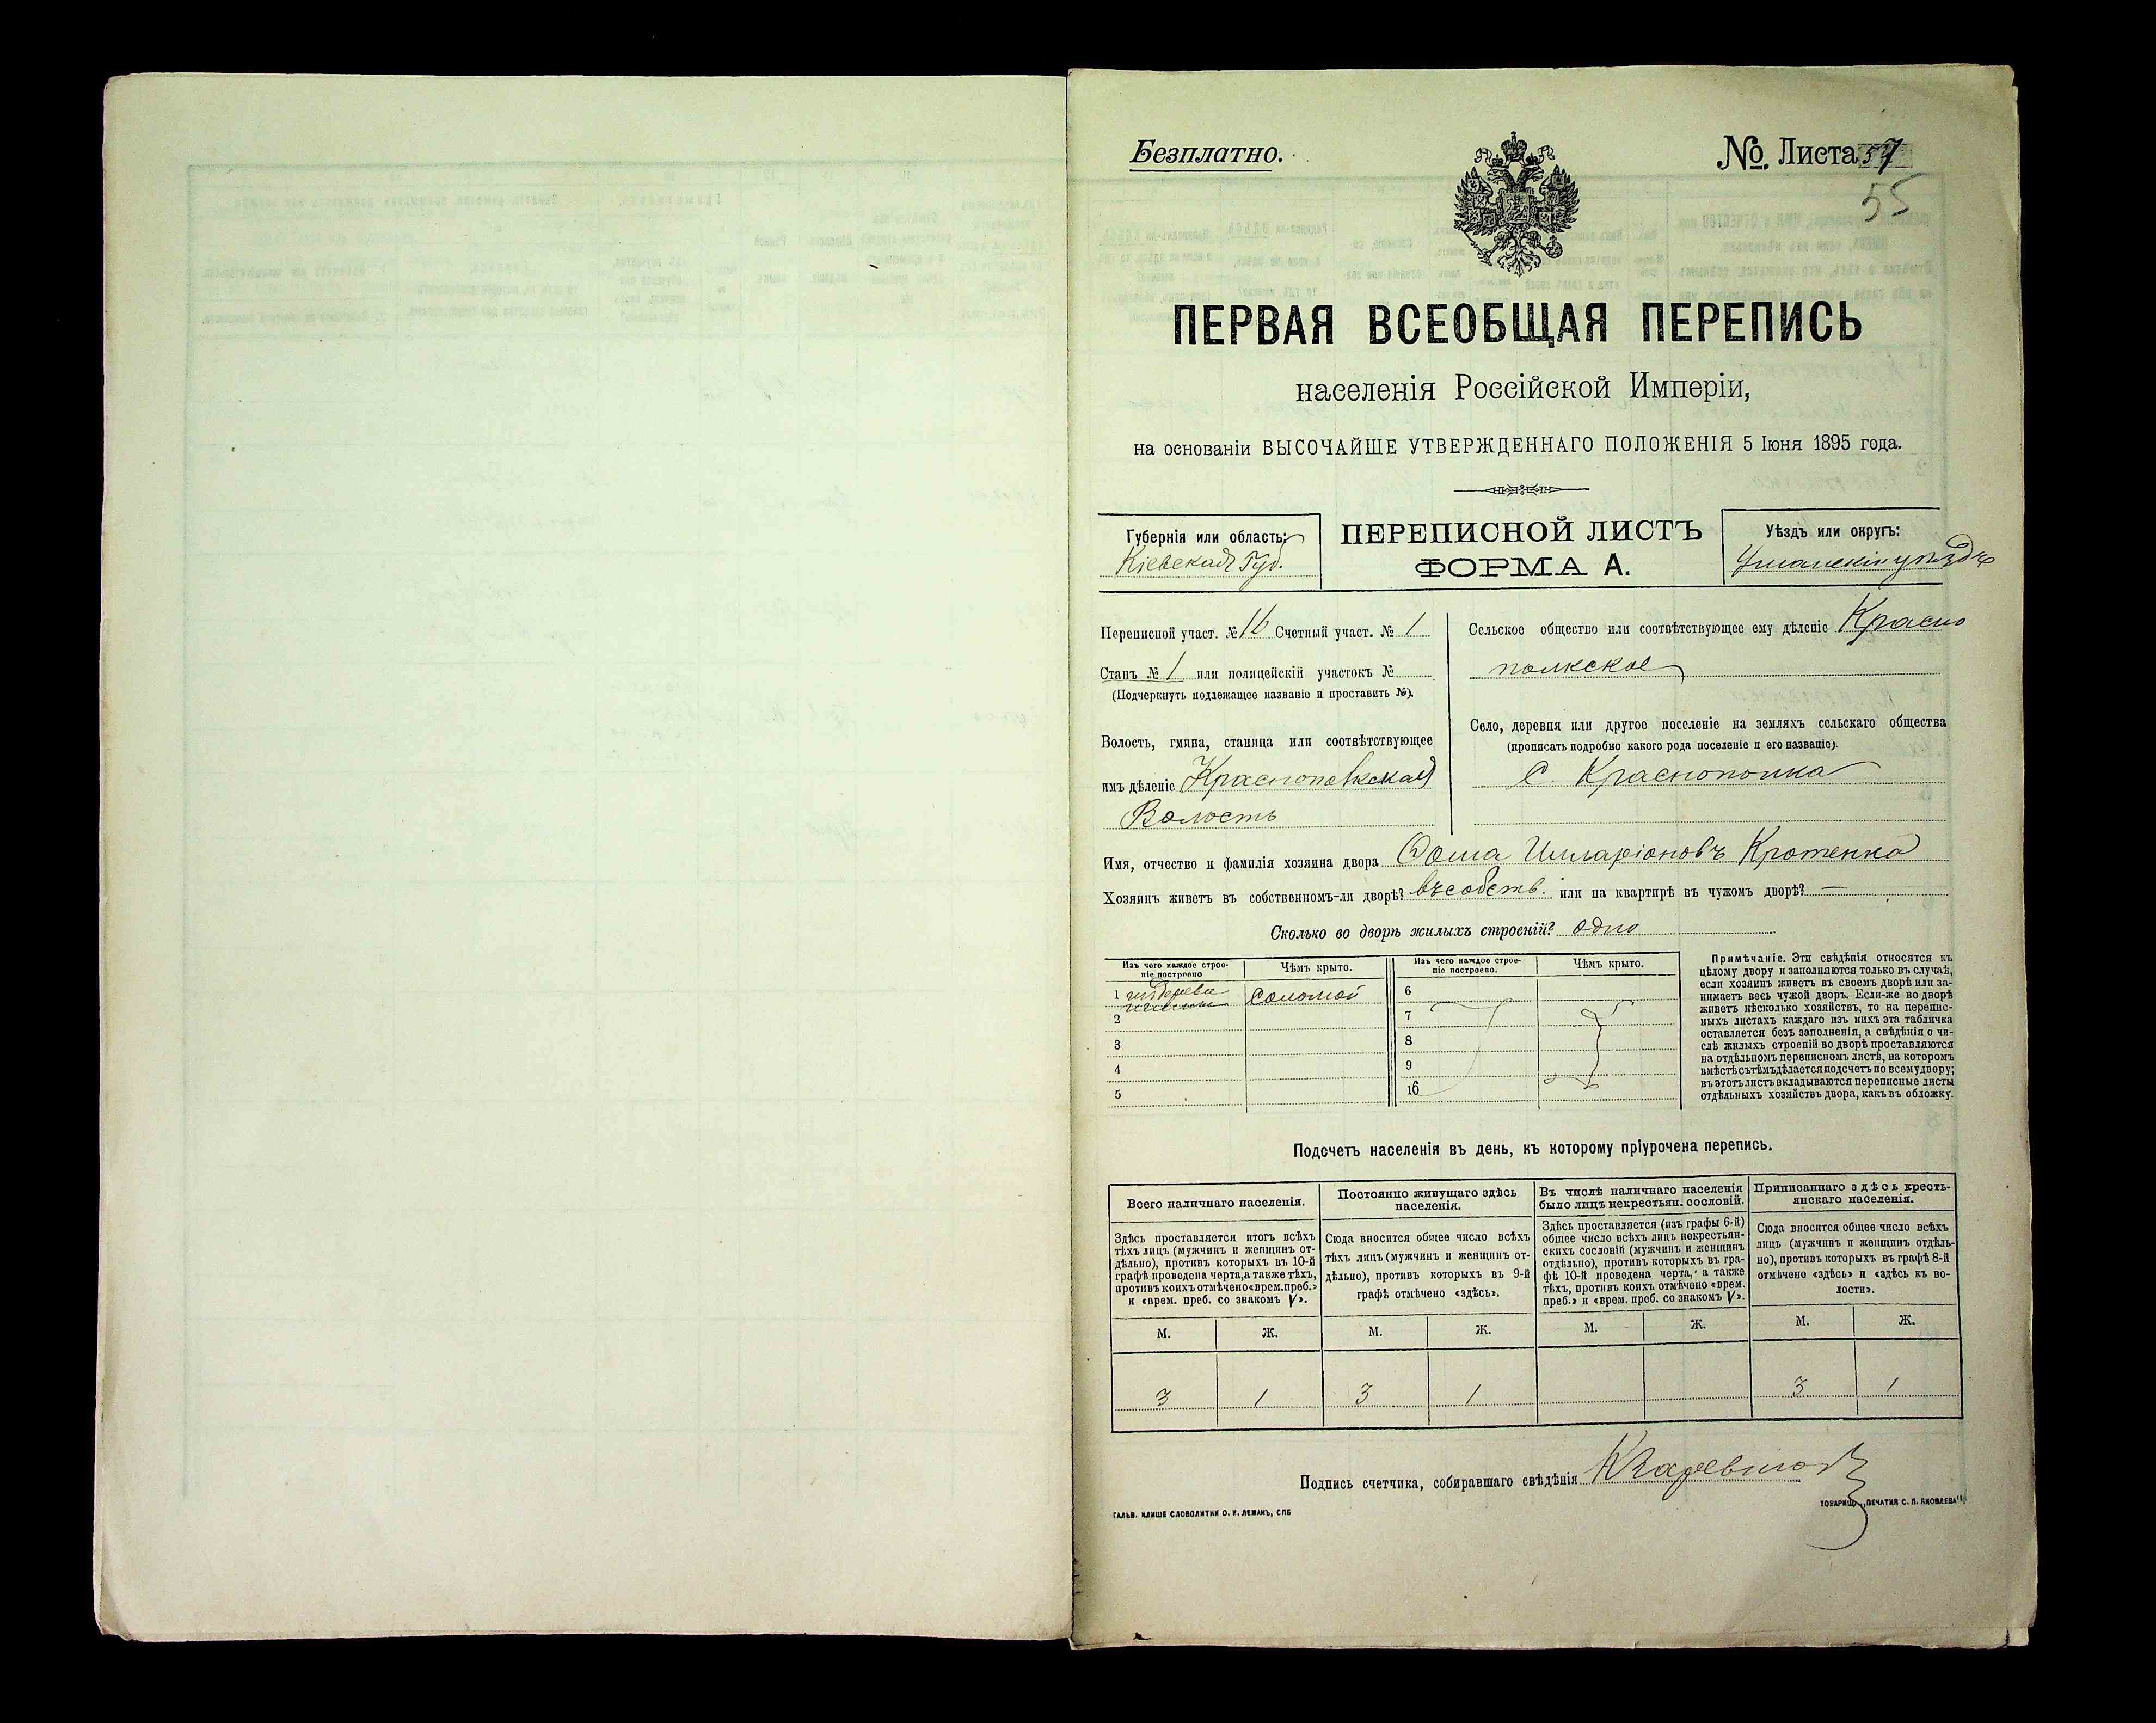 Безплатно.
No. Листа 57
55
ПЕРВАЯ ВСЕОБЩАЯ ПЕРЕПИСЬ
населенія Россійской Имперіи,
на основаніи ВЫСОЧАЙШЕ УТВЕРЖДЕННАГО ПОЛОЖЕНІЯ 5 Іюня 1895 года.
Губернія или область:
Кіевская Губ.
ПЕРЕПИСНОЙ ЛИСТЪ
ФОРМА А.
Уѣздъ или округъ:
Уманскій уѣздъ
Переписной участ. № 16 Счетный участ. № 1
Станъ № 1 или полицейскій участокъ №
(Подчеркнуть подлежащее названіе и проставить №).
Волость, гмина, станица или соотвѣтствующее
имъ дѣленіе Краснополкская
Волость
Сельское общество или соотвѣтствующее ему дѣленіе Красно
полкское
Село, деревня или другое поселеніе на земляхъ сельскаго общества
(прописать подробно какого рода поселеніе и его названіе).
С. Краснополка
Имя, отчество и фамилія хозяина двора Фома Илларіоновъ Кротенко
Хозяинъ живетъ въ собственномъ-ли дворѣ? въ собств. или на квартирѣ въ чужомъ дворѣ? —
Сколько во дворѣ жилыхъ строеній? одно
Изъ чего каждое строе-
ніе построено
Чѣмъ крыто.
Изъ чего каждое строе-
ніе построено.
Чѣмъ крыто.
1 изъ дерева соломой
2
3
4
5
6
7
8
9
10
Примѣчаніе. Эти свѣдѣнія относятся къ
цѣлому двору и заполняются только въ случаѣ,
если хозяинъ живетъ въ своемъ дворѣ или за-
нимаетъ весь чужой дворъ. Если-же во дворѣ
живетъ нѣсколько хозяйствъ, то на перепис-
ныхъ листахъ каждаго изъ нихъ эта табличка
оставляется безъ заполненія, а свѣдѣнія о чи-
слѣ жилыхъ строеній во дворѣ проставляются
на отдѣльномъ переписномъ листѣ, на которомъ
вмѣстѣ съ тѣмъ дѣлается подсчетъ по всему двору;
въ этотъ листъ вкладываются переписные листы
отдѣльныхъ хозяйствъ двора, какъ въ обложку.
Подсчетъ населенія въ день, къ которому пріурочена перепись.
Всего наличнаго населенія.
Здѣсь проставляется итогъ всѣхъ
тѣхъ лицъ (мужчинъ и женщинъ от-
дѣльно), противъ которыхъ въ 10-й
графѣ проведена черта, а также тѣхъ,
противъ коихъ отмѣчено «врем. преб.»
и «врем. преб. со знакомъ V».
Постоянно живущаго здѣсь
населенія.
Сюда вносится общее число всѣхъ
тѣхъ лицъ (мужчинъ и женщинъ от-
дѣльно), противъ которыхъ въ 9-й
графѣ отмѣчено «здѣсь».
Въ числѣ наличнаго населенія
было лицъ некрестьян. сословій.
Здѣсь проставляется (изъ графы 6-й)
общее число всѣхъ лицъ некрестьян-
скихъ сословій (мужчинъ и женщинъ
отдѣльно), противъ которыхъ въ гра-
фѣ 10-й проведена черта, а также
тѣхъ, противъ коихъ отмѣчено «врем.
преб.» и «врем. преб. со знакомъ V».
Приписаннаго здѣсь кресть-
янскаго населенія.
Сюда вносится общее число всѣхъ
лицъ (мужчинъ и женщинъ отдѣль-
но), противъ которыхъ въ графѣ 8-й
отмѣчено «здѣсь» и «здѣсь къ во-
лости».
М. Ж. М. Ж. М. Ж. М. Ж.
3 1 3 1 3 1
Подпись счетчика, собиравшаго свѣдѣнія
ГАЛЬВ. КЛИШЕ СЛОВОЛИТНИ О. И. ЛЕМАНЪ, СПБ
ТОВАРИЩ. „ПЕЧАТНЯ С. П. ЯКОВЛЕВА“